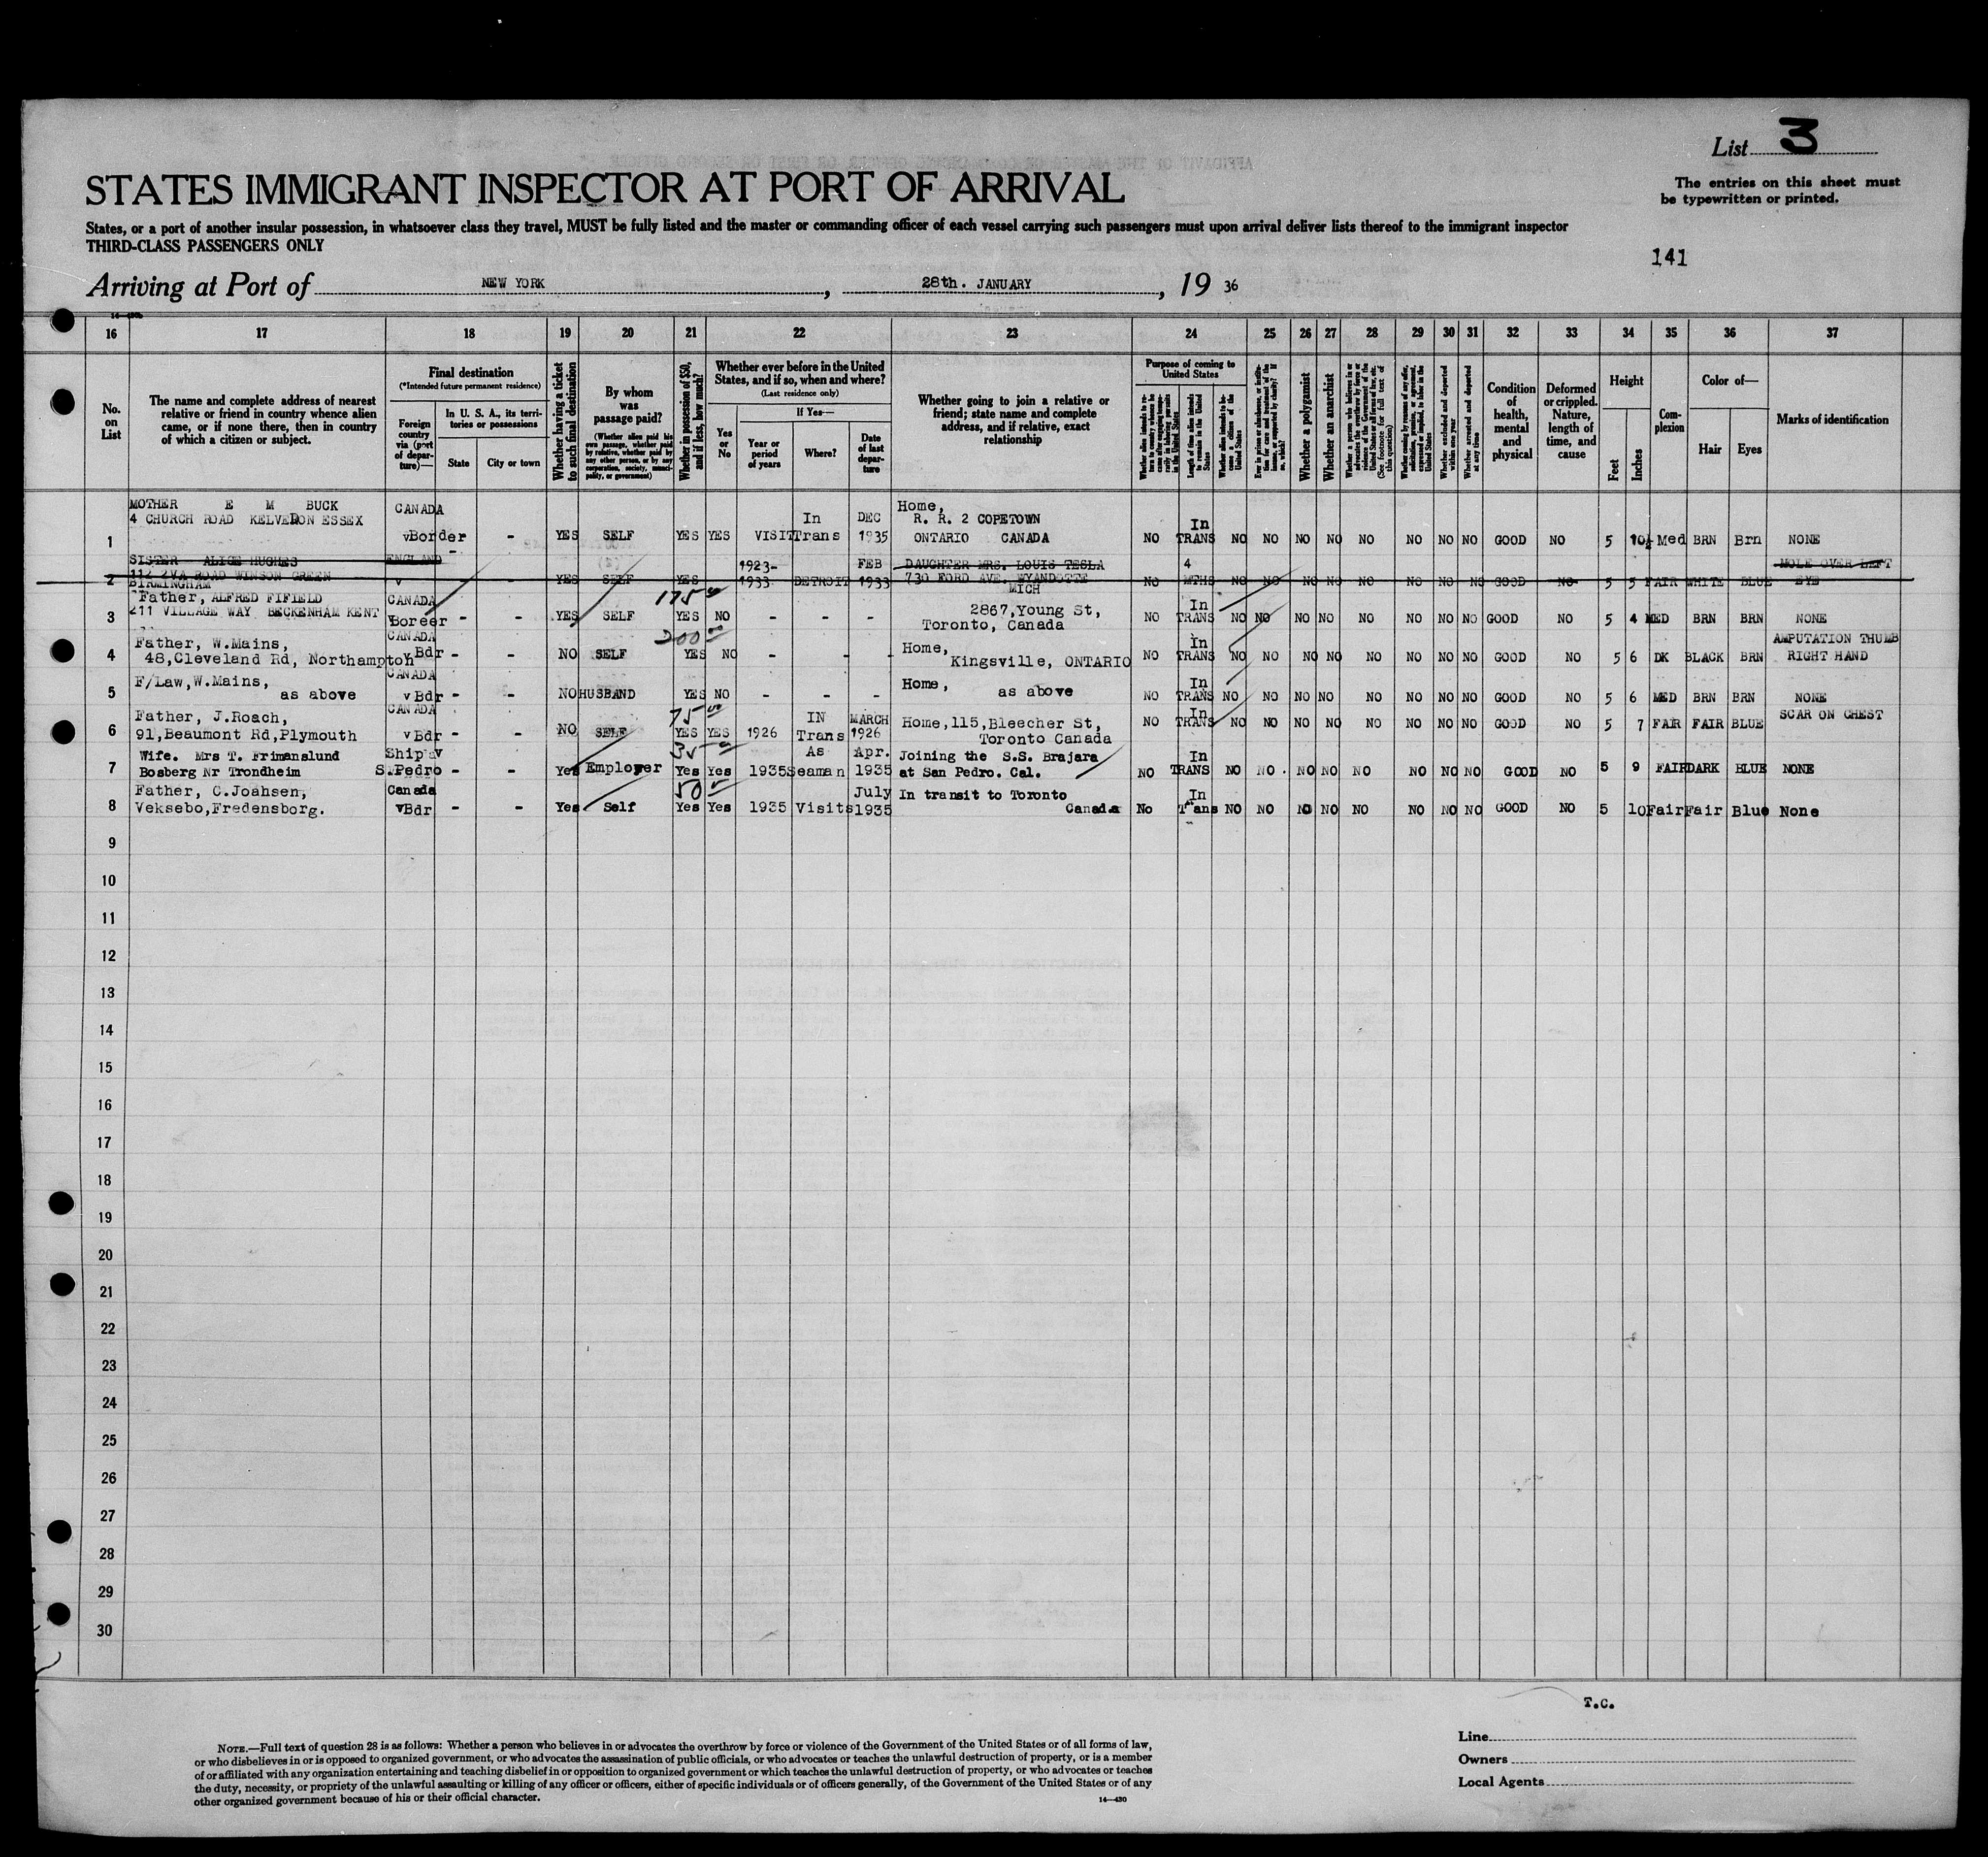 List 3
The entries on this sheet must
be typewritten or printed.
STATES IMMIGRANT INSPECTOR AT PORT OF ARRIVAL
States, or a port of another insular possession, in whatsoever class they travel, MUST be fully listed and the master or commanding officer of each vessel carrying such passengers must upon arrival deliver lists thereof to the immigrant inspector
THIRD-CLASS PASSENGERS ONLY
141
Arriving at Port of NEW YORK, 28th. JANUARY, 19 36
16 17 18 19 20 21 22 23 24 25 26 27 28 29 30 31 32 33 34 35 36 37
No. on List
The name and complete address of nearest relative or friend in country whence alien came, or if none there, then in country of which a citizen or subject.
Final destination
(*Intended future permanent residence)
Foreign country via (port of departure)—
In U. S. A., its territories or possessions
State
City or town
Whether having a ticket to such final destination
By whom was passage paid?
(Whether alien paid his own passage, whether paid by relative, whether paid by any other person, or by any corporation, society, municipality, or government)
Whether in possession of $50, and if less, how much?
Whether ever before in the United States, and if so, when and where?
(Last residence only)
Yes or No
If Yes—
Year or period of years
Where?
Date of last departure
Whether going to join a relative or friend; state name and complete address, and if relative, exact relationship
Purpose of coming to United States
Whether a polygamist
Whether an anarchist
(See footnote for full text of this question)
Whether excluded and deported within one year
Whether arrested and deported at any time
Condition of health, mental and physical
Deformed or crippled. Nature, length of time, and cause
Height
Feet
Inches
Complexion
Color of—
Hair
Eyes
Marks of identification
MOTHER E M BUCK CANADA Home,
4 CHURCH ROAD KELVEDON ESSEX In DEC R. R. 2 COPETOWN In
1 vBorder - YES SELF YES YES VISIT Trans 1935 ONTARIO CANADA NO TRANS NO NO NO NO NO NO NO NO GOOD NO 5 10½ Med BRN Brn NONE
SISTER ALICE HUGHES ENGLAND 1923- FEB DAUGHTER MRS. LOUIS TESLA 4 MOLE OVER LEFT
2 112 ROAD WINSON GREEN v YES SELF YES 1933 DETROIT 1933 730 FORD AVE. WYANDOTTE NO MTHS NO NO NO NO NO NO NO NO GOOD NO 5 5 FAIR WHITE BLUE EYE
BIRMINGHAM MICH
Father, ALFRED FIFIELD CANADA 175 00 2867, Young St, In
3 211 VILLAGE WAY BECKENHAM KENT vBoreer - - YES SELF YES NO - - - Toronto, Canada NO TRANS NO NO NO NO NO NO NO NO GOOD NO 5 4 MED BRN BRN NONE
Father, W.Mains, CANADA 200 00 Home, In AMPUTATION THUMB
4 48,Cleveland Rd, Northampton vBdr - - NO SELF YES NO - - - Kingsville, ONTARIO NO TRANS NO NO NO NO NO NO NO NO GOOD NO 5 6 DK BLACK BRN RIGHT HAND
F/Law,W.Mains, CANADA Home, In
5 as above vBdr - - NO HUSBAND YES NO - - - as above NO TRANS NO NO NO NO NO NO NO NO GOOD NO 5 6 MED BRN BRN NONE
Father, J.Roach, CANADA 75 00 IN MARCH Home,115,Bleecher St, In SCAR ON CHEST
6 91,Beaumont Rd,Plymouth vBdr - - NO SELF YES YES 1926 Trans 1926 Toronto Canada NO TRANS NO NO NO NO NO NO NO NO GOOD NO 5 7 FAIR FAIR BLUE
Wife. Mrs T. Frimanslund Ship v 35 00 As Apr. Joining the S.S. Brajara In
7 Bosberg Nr Trondheim S.Pedro - - Yes Employer Yes Yes 1935 Seaman 1935 at San Pedro. Cal. NO TRANS NO NO. NO NO NO NO NO NO GOOD NO 5 9 FAIR DARK BLUE NONE
Father, C.Joahsen, Canada 50 July In transit to Toronto In
8 Veksebo,Fredensborg. vBdr - - Yes Self Yes Yes 1935 Visits 1935 Canada No Trans NO NO NO NO NO NO NO NO GOOD NO 5 10 Fair Fair Blue None
9
10
11
12
13
14
15
16
17
18
19
20
21
22
23
24
25
26
27
28
29
30
T.C.
NOTE.—Full text of question 28 is as follows: Whether a person who believes in or advocates the overthrow by force or violence of the Government of the United States or of all forms of law,
or who disbelieves in or is opposed to organized government, or who advocates the assassination of public officials, or who advocates or teaches the unlawful destruction of property, or is a member
of or affiliated with any organization entertaining and teaching disbelief in or opposition to organized government or which teaches the unlawful destruction of property, or who advocates or teaches
the duty, necessity, or propriety of the unlawful assaulting or killing of any officer or officers, either of specific individuals or of officers generally, of the Government of the United States or of any
other organized government because of his or their official character.
14—430
Line
Owners
Local Agents